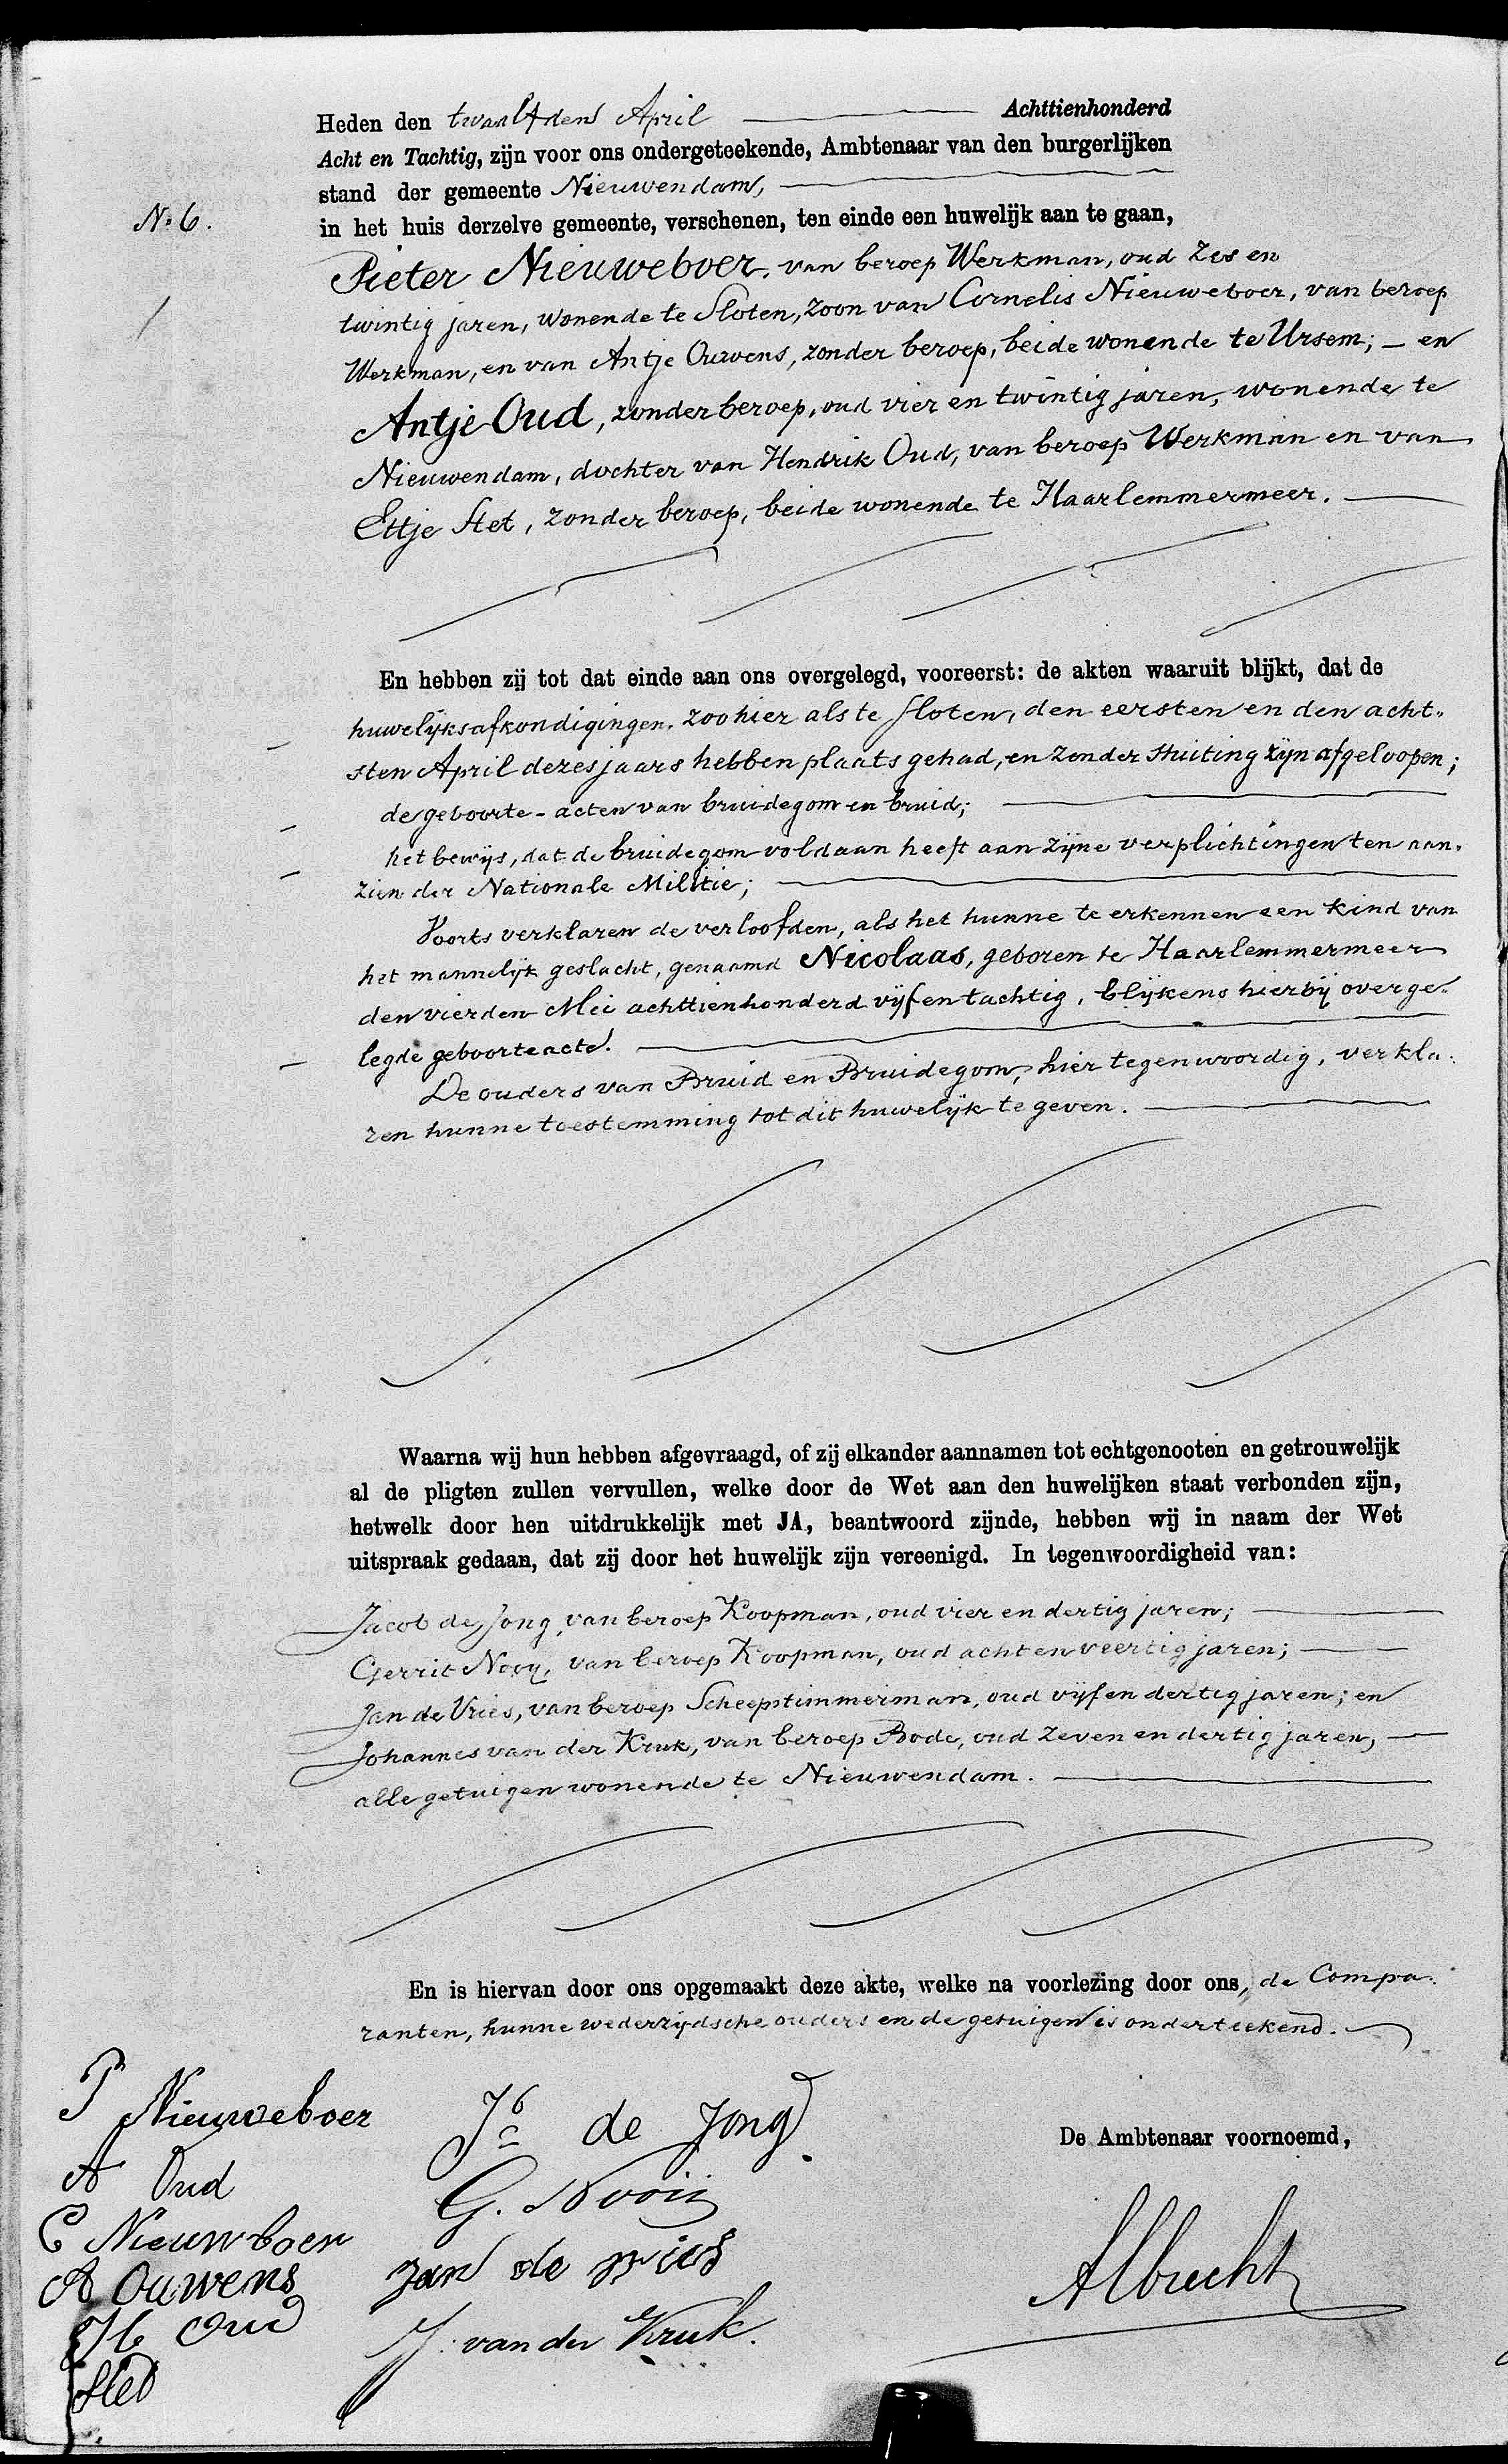 Heden den twaalfden April Achttienhonderd
Acht en Tachtig, zijn voor ons ondergeteekende, Ambtenaar van den burgerlijken
stand der gemeente Nieuwendam,
No 6.
in het huis derzelve gemeente, verschenen, ten einde een huwelijk aan te gaan,
Pieter Nieuweboer, van beroep Werkman, oud Zes en
twintig jaren, wonende te Sloten, zoon van Cornelis Nieuweboer, van beroep
Werkman, en van Antje Ouwens, zonder beroep, beide wonende te Ursem; – en
Antje Oud, zonder beroep, oud vier en twintig jaren, wonende te
Nieuwendam, dochter van Hendrik Oud, van beroep Werkman en van
Ettje Stet, zonder beroep, beide wonende te Haarlemmermeer.
En hebben zij tot dat einde aan ons overgelegd, vooreerst: de akten waaruit blijkt, dat de
huwelijksafkondigingen, zoo hier als te Sloten, den eersten en den acht-
sten April dezes jaars hebben plaats gehad, en zonder stuiting zijn afgeloopen;
de geboorte-acten van bruidegom en bruid;
het bewijs, dat de bruidegom voldaan heeft aan zijne verplichtingen ten aan-
zien der Nationale Militie;
Voorts verklaren de verloofden, als het hunne te erkennen een kind van
het mannelijk geslacht, genaamd Nicolaas, geboren te Haarlemmermeer
den vierden Mei achttienhonderd vijf en tachtig, blijkens hierbij overge-
legde geboorteacte.
De ouders van Bruid en Bruidegom, hier tegenwoordig, verkla-
ren hunne toestemming tot dit huwelijk te geven.
Waarna wij hun hebben afgevraagd, of zij elkander aannamen tot echtgenooten en getrouwelijk
al de pligten zullen vervullen, welke door de Wet aan den huwelijken staat verbonden zijn,
hetwelk door hen uitdrukkelijk met JA, beantwoord zijnde, hebben wij in naam der Wet
uitspraak gedaan, dat zij door het huwelijk zijn vereenigd. In tegenwoordigheid van:
Jacob de Jong, van beroep Koopman, oud vier en dertig jaren;
Gerrit Nooij, van beroep Koopman, oud acht en veertig jaren;
Jan de Vries, van beroep Scheepstimmerman, oud vijf en dertig jaren; en
Johannes van der Kruk, van beroep Bode, oud zeven en dertig jaren,
alle getuigen wonende te Nieuwendam.
En is hiervan door ons opgemaakt deze akte, welke na voorlezing door ons, de Compa-
ranten, hunne wederzijdsche ouders en de getuigen is onderteekend.
P Nieuweboer
A Oud
C Nieuwboer
A Ouwens
H Oud
Sted
Jb de Jong
G. Nooij
Jan de vries
J. van der Kruk.
De Ambtenaar voornoemd,
Albrecht